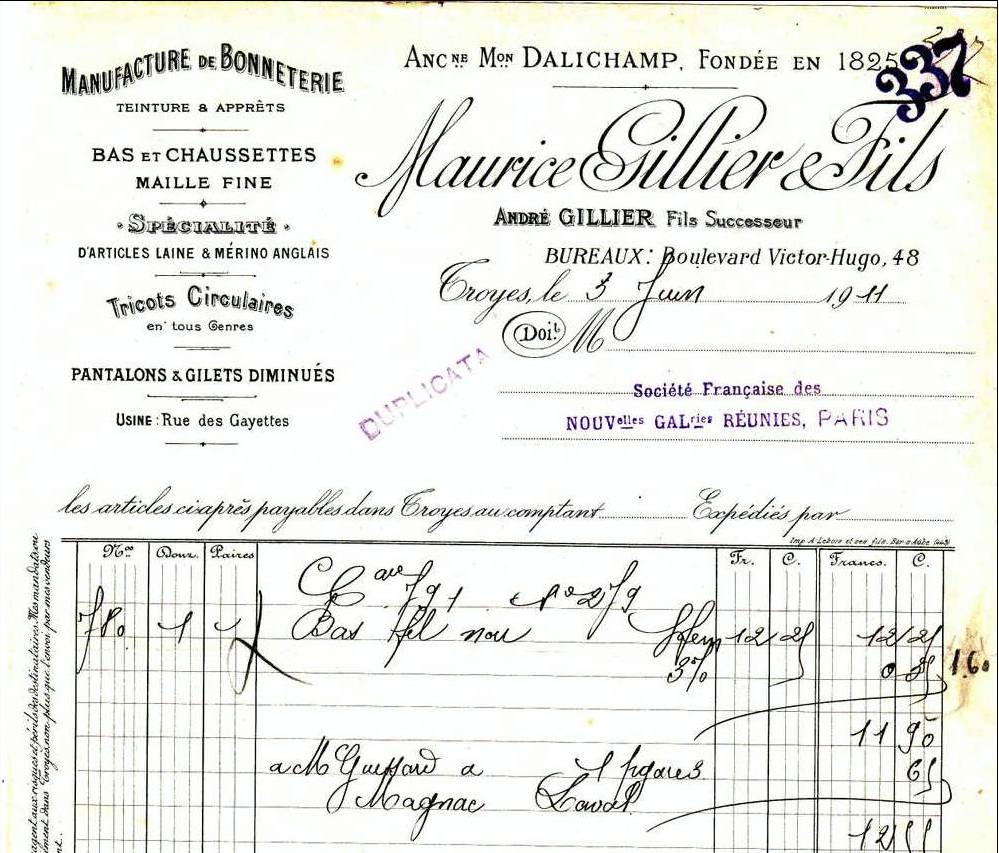 MANUFACTURE DE BONNETERIE
TEINTURE & APPRÊTS
BAS ET CHAUSSETTES
MAILLE FINE
SPÉCIALITÉ
D'ARTICLES LAINE & MÉRINO ANGLAIS
Tricots Circulaires
en tous Genres
PANTALONS & GILETS DIMINUÉS
USINE : Rue des Gayettes
ANCNE MON DALICHAMP, FONDÉE EN 1825
337
Maurice Gillier & Fils
ANDRÉ GILLIER Fils Successeur
BUREAUX: Boulevard Victor-Hugo, 48
Troyes, le 3 Juin 1911
Doit M
DUPLICATA
Société Française des
NOUVelles GALries RÉUNIES, PARIS
les articles ci-après payables dans Troyes au comptant Expédiés par
Imp. A. Lebois et ses fils. Bar-s-Aube (443)
Nos Douz. Paires Fr. C. Francs. C.
791 No 279
780 1 Bas fil noir 12 25 12 25
3% 0 35
1.60
11 90
a M a 1 65
Magnac Laval
12 55